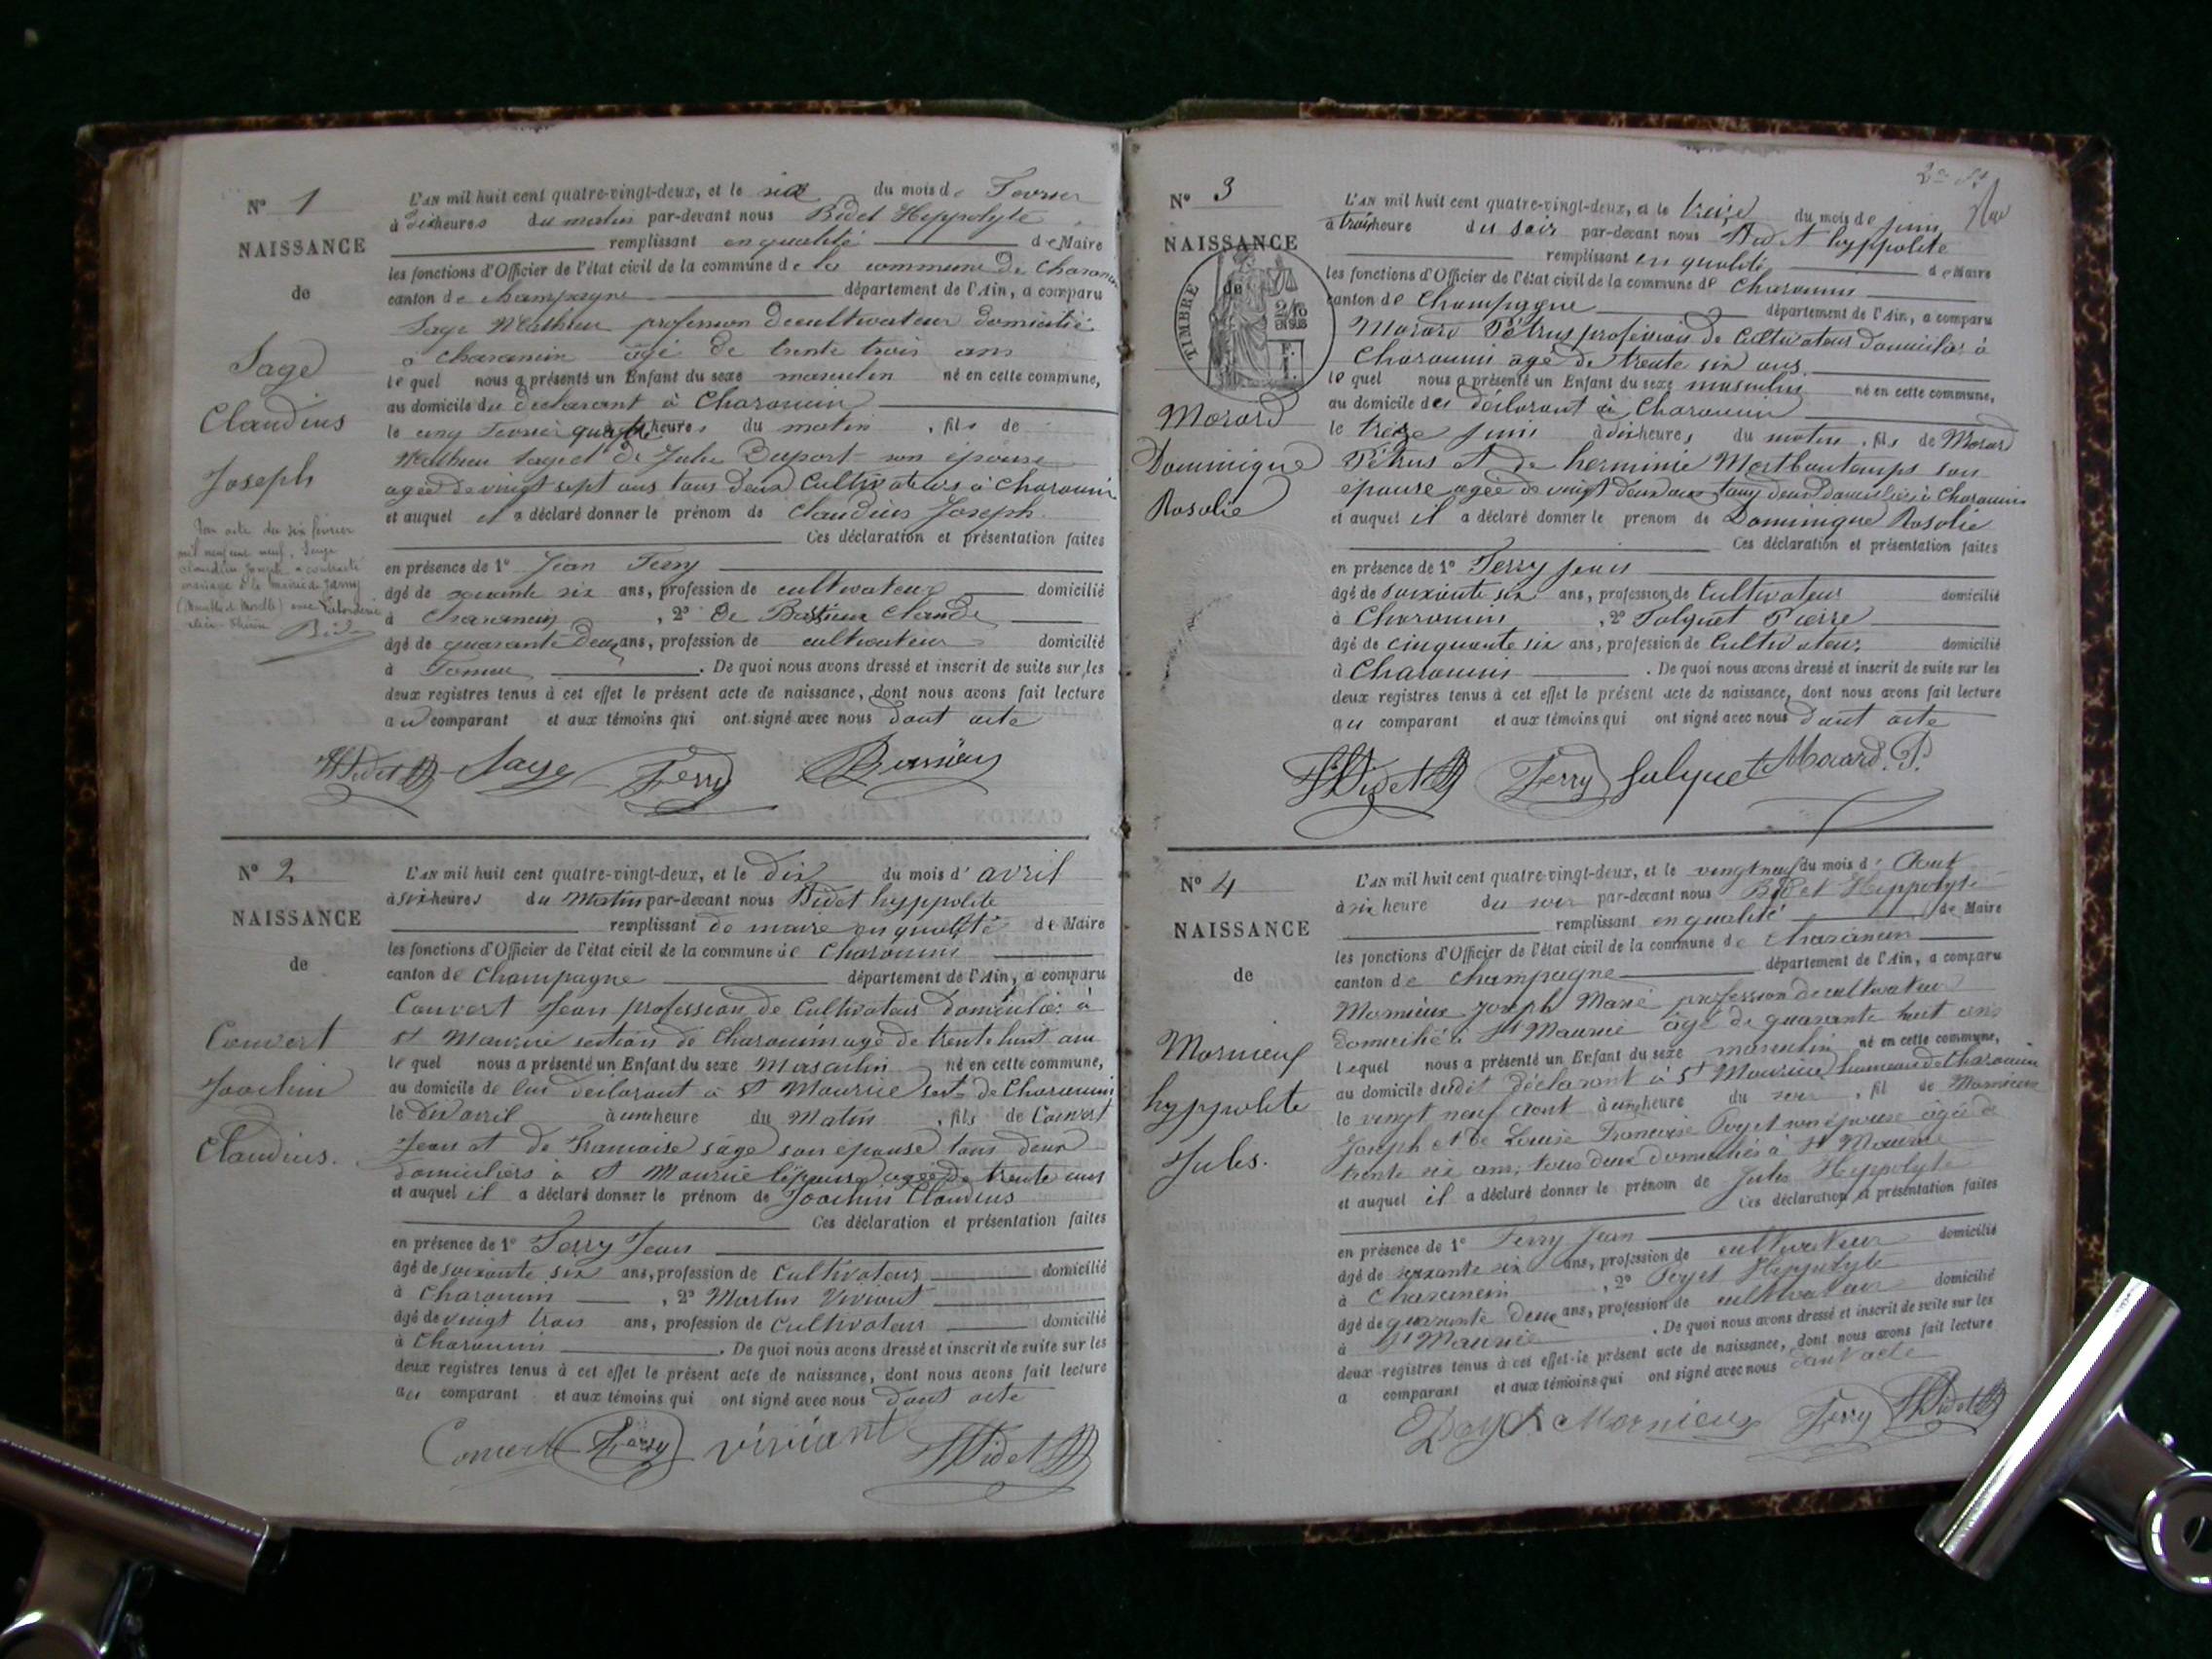 N° 1
NAISSANCE
de
Sage
Claudius
Joseph
L'AN mil huit cent quatre-vingt-deux, et le six du mois de Fevrier
à dix heures du matin par-devant nous Bidet Hyppolyte
remplissant en qualité de Maire
les fonctions d'Officier de l'état civil de la commune de la commune de Charancin
canton de champagne département de l'Ain, a comparu
Sage Mathieu profession de cultivateur domicilié
a charancin âgé de trente trois ans
le quel nous a présenté un Enfant du sexe masculin né en cette commune,
au domicile du declarant à Charancin
le cinq Fevrier quatre heures du matin, fils de
Mathieu Sage et de Julie Duport son épouse
agée de vingt sept ans tous deux Cultivateurs à Charancin
et auquel il a déclaré donner le prénom de Claudius Joseph
Ces déclaration et présentation faites
en présence de 1° Jean Ferry
âgé de soixante six ans, profession de cultivateur domicilié
à Charancin, 2° De Bussieu Claude
âgé de quarante deux ans, profession de cultivateur domicilié
à. De quoi nous avons dressé et inscrit de suite sur les
deux registres tenus à cet effet le présent acte de naissance, dont nous avons fait lecture
au comparant et aux témoins qui ont signé avec nous dont acte
Par acte du six février
mil neuf cent neuf, Sage
Claudius Joseph a contracté
mariage à la mairie de Jarny
(Meurthe et Moselle) avec
HBidet Sage Ferry
N° 2
NAISSANCE
de
Convert
Joachin
Claudius.
L'AN mil huit cent quatre-vingt-deux, et le Dix du mois d'avril
à six heures du Matin par-devant nous Bidet hyppolite
remplissant de maire en qualité de Maire
les fonctions d'Officier de l'état civil de la commune de Charancin
canton de Champagne département de l'Ain, a comparu
Convert Jean profession de Cultivateur domicilié à
St Maurice section de Charancin agé de trente huit ans
le quel nous a présenté un Enfant du sexe Masculin né en cette commune,
au domicile de lui declarant a St Maurice sect de Charancin
le Dix avril à une heure du Matin, fils de Convert
Jean et de Francoise sage son epouse tous deux
domiciliers à St Maurice l'épouse agée de trente ans
et auquel il a déclaré donner le prénom de Joachin Claudius
Ces déclaration et présentation faites
en présence de 1° Ferry Jean
âgé de soixante six ans, profession de Cultivateur domicilié
à Charancin, 2° Martin Viviant
âgé de vingt trois ans, profession de Cultivateur domicilié
à Charancin. De quoi nous avons dressé et inscrit de suite sur les
deux registres tenus à cet effet le présent acte de naissance, dont nous avons fait lecture
au comparant et aux témoins qui ont signé avec nous dont acte
Convert Ferry viviant HBidet
2e
N° 3
NAISSANCE
de
TIMBRE
2/10
EN SUS
Morard
Dominique
Rosalie
L'AN mil huit cent quatre-vingt-deux, et le treize du mois de juin
à trois heure du soir par-devant nous Bidet hyppolite
remplissant en qualité de Maire
les fonctions d'Officier de l'état civil de la commune de Charancin
canton de Champagne département de l'Ain, a comparu
Morard Pétrus profession de Cultivateur domicilié à
Charancin agé de trente six ans
le quel nous a présenté un Enfant du sexe masculin né en cette commune,
au domicile de déclarant à Charancin
le treize juin à dix heures du matin, fils de Morard
Pétrus et de herminie Montbautemps son
épouse agée de vingt deux ans tous deux domiciliés à Charancin
et auquel il a déclaré donner le prenom de Dominique Rosalie
Ces déclaration et présentation faites
en présence de 1° Ferry jean
âgé de soixante six ans, profession de Cultivateur domicilié
à Charancin, 2° Julquet Pierre
âgé de cinquante six ans, profession de Cultivateur domicilié
à Charancin. De quoi nous avons dressé et inscrit de suite sur les
deux registres tenus à cet effet le présent acte de naissance, dont nous avons fait lecture
au comparant et aux témoins qui ont signé avec nous dont acte
HBidet Ferry Julquet Morard. P.
N° 4
NAISSANCE
de
Mornieux
hyppolite
Jules.
L'AN mil huit cent quatre-vingt-deux, et le vingt neuf du mois d'Aout
à six heure du soir par-devant nous Bidet Hyppolyte
remplissant en qualité de Maire
les fonctions d'Officier de l'état civil de la commune de Charancin
canton de champagne département de l'Ain, a comparu
Mornieux Joseph Marie profession de cultivateur
domicilié à St Maurice âgé de quarante huit ans
lequel nous a présenté un Enfant du sexe masculin né en cette commune,
au domicile dudit déclarant à St Maurice hameau de Charancin
le vingt neuf Aout à une heure du soir, fil de Mornieux
Joseph et de Louise Francoise Poyet son épouse âgée de
trente six ans, tous deux domiciliés à St Maurice
et auquel il a déclaré donner le prénom de Jules Hyppolyte
Ces déclaration et présentation faites
en présence de 1° Ferry Jean
âgé de soixante six ans, profession de cultivateur domicilié
à Charancin, 2° Poyet Hyppolyte
âgé de quarante deux ans, profession de cultivateur domicilié
à St Maurice. De quoi nous avons dressé et inscrit de suite sur les
deux registres tenus à cet effet le présent acte de naissance, dont nous avons fait lecture
a comparant et aux témoins qui ont signé avec nous dont acte
Poyet Mornieux Ferry HBidet